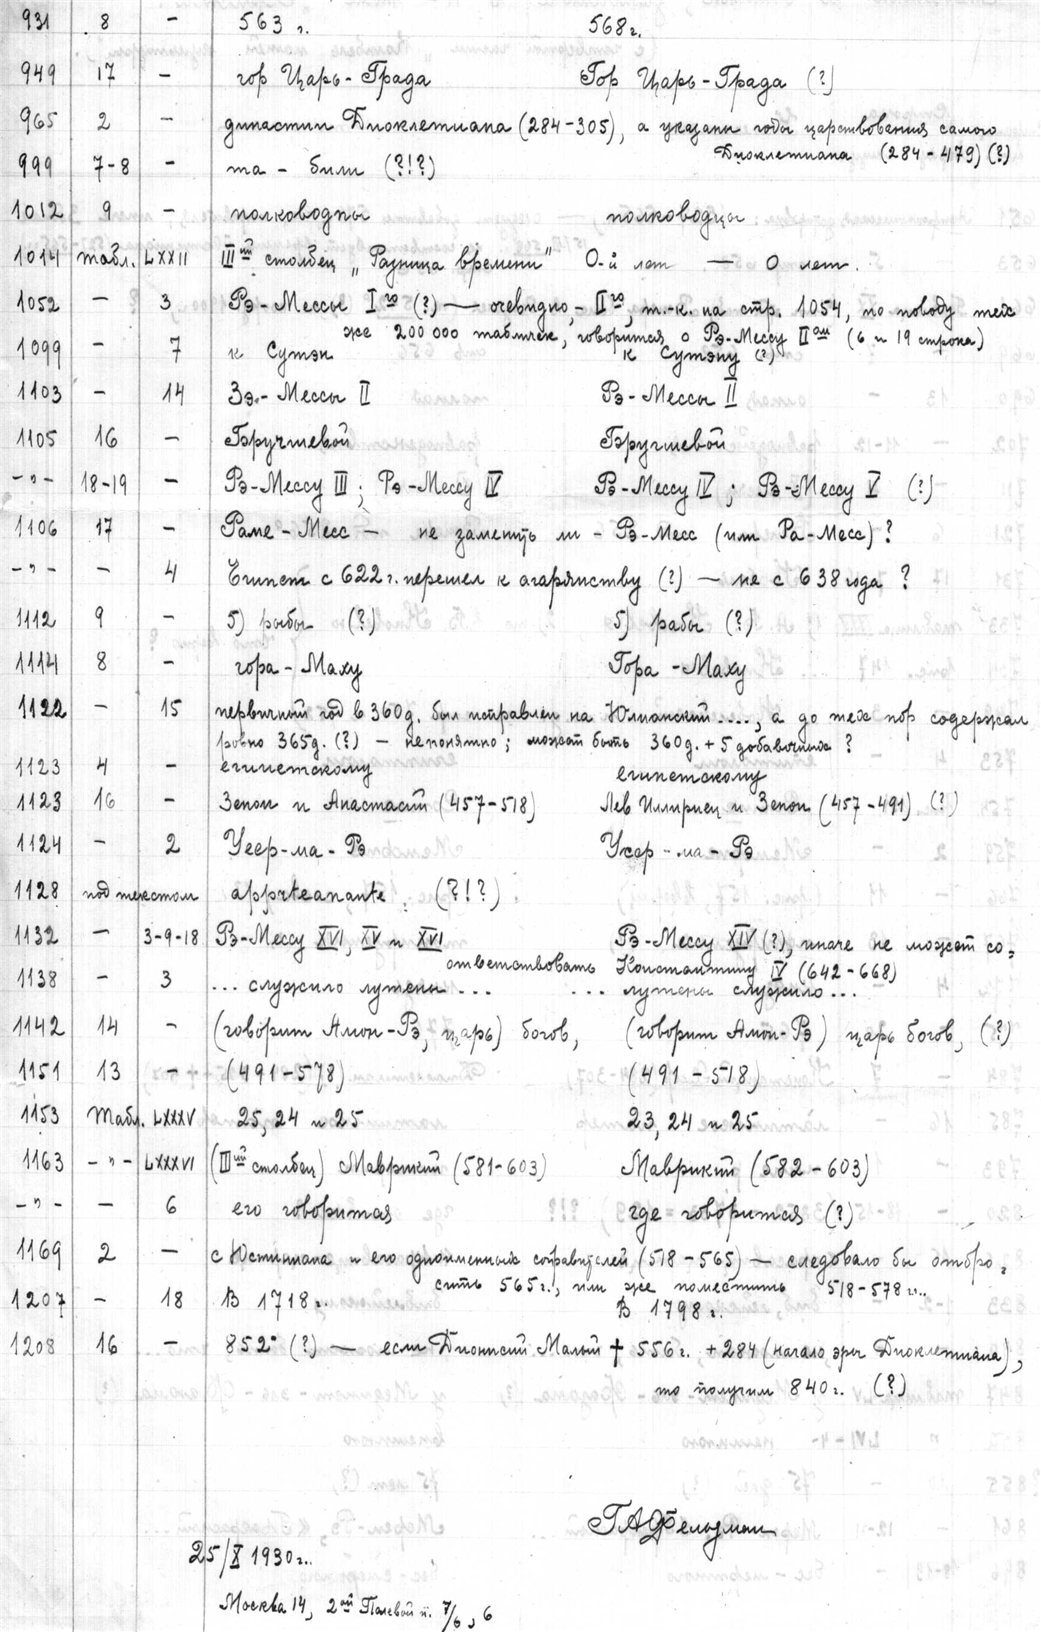 931 8 - 563 г. 568 г.
949 17 - гор Царь-Града Гор Царь-Града (?)
965 2 - династии Диоклетиана (284-305), а указаны годы царствования самого
Диоклетиана (284-479) (?)
999 7-8 - та - били (?!?)
1012 9 - полководпы полководцы
1014 табл. LXXII IIIий столбец „Разница времени" 0-й лет — 0 лет.
1052 - 3 Рэ-Мессы Iго (?) — очевидно, - IIго, т.-к. на стр. 1054, по поводу тех
же 200 000 табличек, говорится о Рэ-Мессу IIом (6 и 19 строка)
1099 - 7 к Сутэн к Сутэну (?)
1103 - 14 Зэ.-Мессы II Рэ-Мессы II
1105 16 - Бэручшевой Бэругшевой
-"- 18-19 - Рэ-Мессу III; Рэ-Мессу IV Рэ-Мессу IV; Рэ-Мессу V (?)
1106 17 - Раме-Месс — не заменить ли - Рэ-Месс (или Ра-Месс)?
-"- - 4 Египет с 622 г. перешел к агарянству (?) — не с 638 года?
1112 9 - 5) рыбы (?) 5) рабы (?)
1114 8 - гора-Маху Гора-Маху
1122 - 15 первичный год в 360 д. был исправлен на Юлианский...., а до тех пор содержал
ровно 365 д. (?) — непонятно; может быть 360 д. + 5 добавочных?
1123 4 - египетскому египетскому
1123 16 - Зенон и Анастасий (457-518) Лев Иллириец и Зенон (457-491) (?)
1124 - 2 Уеер-ма-Рэ Усер-ма-Рэ
1128 под текстом appгteanante. (?!?)
1132 - 3-9-18 Рэ-Мессу XVI, XV и XVI Рэ-Мессу XIV (?), иначе не может со=
ответствовать Константину IV (642-668)
1138 - 3 ... служило лутены... ... лутены служило...
1142 14 - (говорит Амон-Рэ, царь) богов, (говорит Амон-Рэ) царь богов, (?)
1151 13 - (491-578) (491-518)
1153 Табл. LXXXV 25, 24 и 25 23, 24 и 25
1163 -"- LXXXVI (IIIий столбец) Маврикий (581-603) Маврикий (582-603)
-"- - 6 его говорится где говорится (?)
1169 2 - с Юстиниана и его одноименных соправителей (518-565) — следовало бы отбро=
сить 565 г., или же поместить 518-578 г..
1207 - 18 В 1718 г. В 1798 г.
1208 16 - 852" (?) — если Дионисий Малый † 556 г. + 284 (начало эры Диоклетиана),
то получим 840 г. (?)
ГАФельдман
25/X 1930 г..
Москва 14, 2ой Полевой п. 7/6, 6